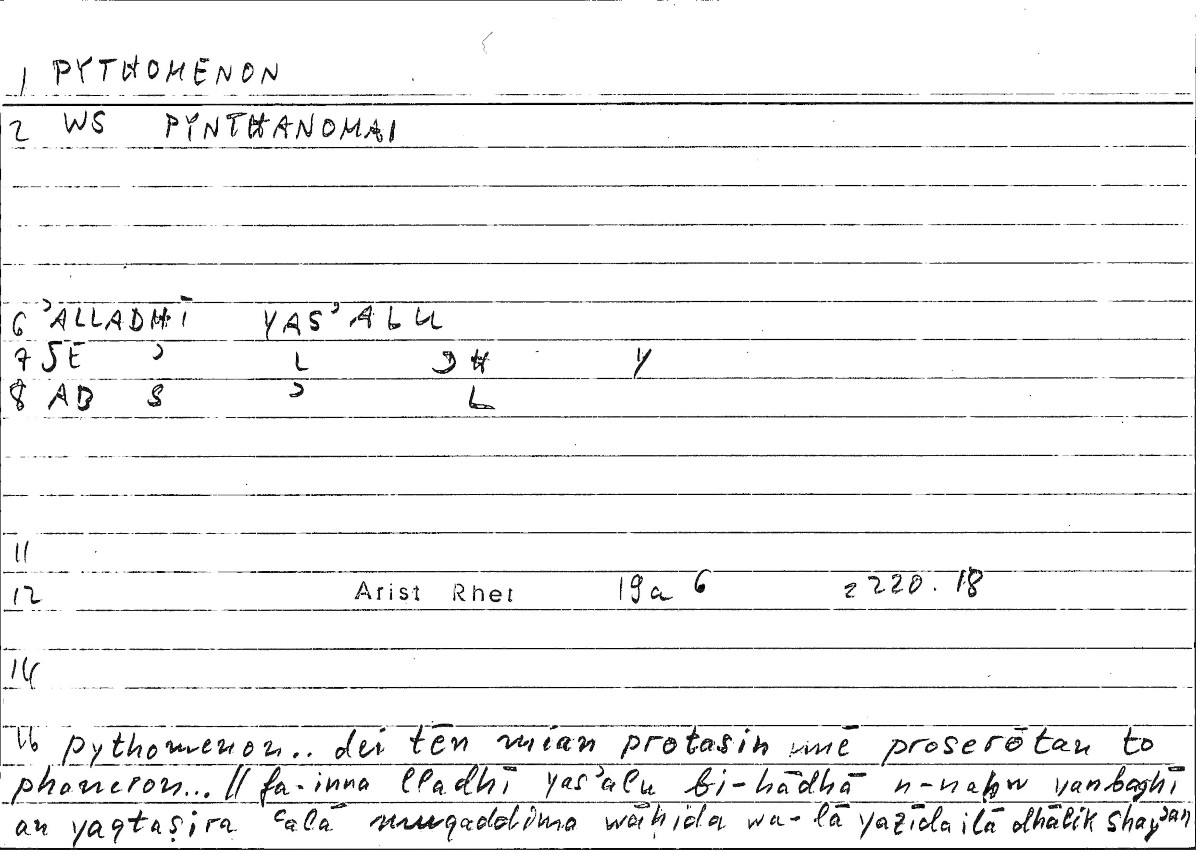 1 PYTHOMENON
2 WS PYNTHANOMAI
6 ʾALLADHĪ YASʾALU
7 SE ʾ L DH Y
8 AB S ʾ L
11
12 Arist Rhet 19a 6 220.18
14
16 pythomenon.. dei tēn mian protasin mē proserōtan to
phaneron... // fa-inna lladhī yasʾalu bi-hādhā n-naḥw yanbaghī
an yaqtaṣira ʿalā muqaddima wāḥida wa-lā yazīda ilā dhālik shayʾan